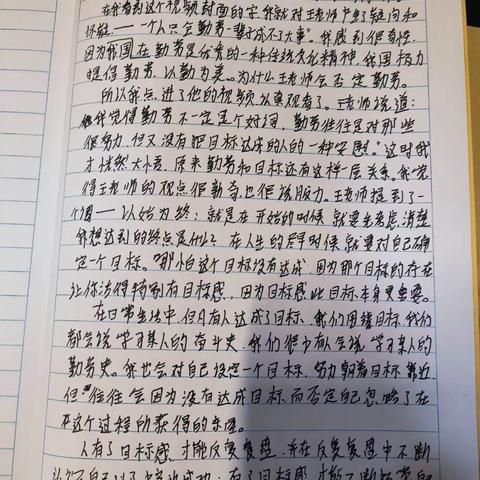 在我看到这个视频封面的字我就对王老师产生了疑问和
怀疑——一个人只会勤劳一辈子成不了大事". 我感到很奇怪,
因为我国在勤劳是优秀的一种传统文化精神, 我国极力
提倡勤劳, 以勤为美。为什么王老师会否定勤劳。
所以我点进了他的视频认真观看了。王老师说道:
我觉得勤劳不一定是个好词, 勤劳往往是对那些
很努力, 但又没有把目标达成的人的一种安慰." 这时我
才恍然大悟, 原来勤劳和目标还有这样一层关系。我觉
得王老师的观点很新奇也很说服力。王老师提到了一
个词——以始为终: 就是在开始的时候就要先考虑清楚
我想达到的终点是什么? 在人生的 时候就要对自己确
定一个目标。哪怕这个目标没有达成, 因为那个目标的存在
让你活得特别有目标感, 因为目标感比目标本身更重要。
在日常生活中, 但凡有人达成了目标, 我们用错目标, 我们
都会说学习某人的奋斗史, 我们很少有人会说学习某人的
勤劳史。我也会对自己设定一个目标, 努力朝着目标靠近,
但 往往会因为没有达成目标, 而否定自己忽略了在
在这个过程所获得的东西。
人有了目标感, 才能反复复盘, 并在反复复盘中不断